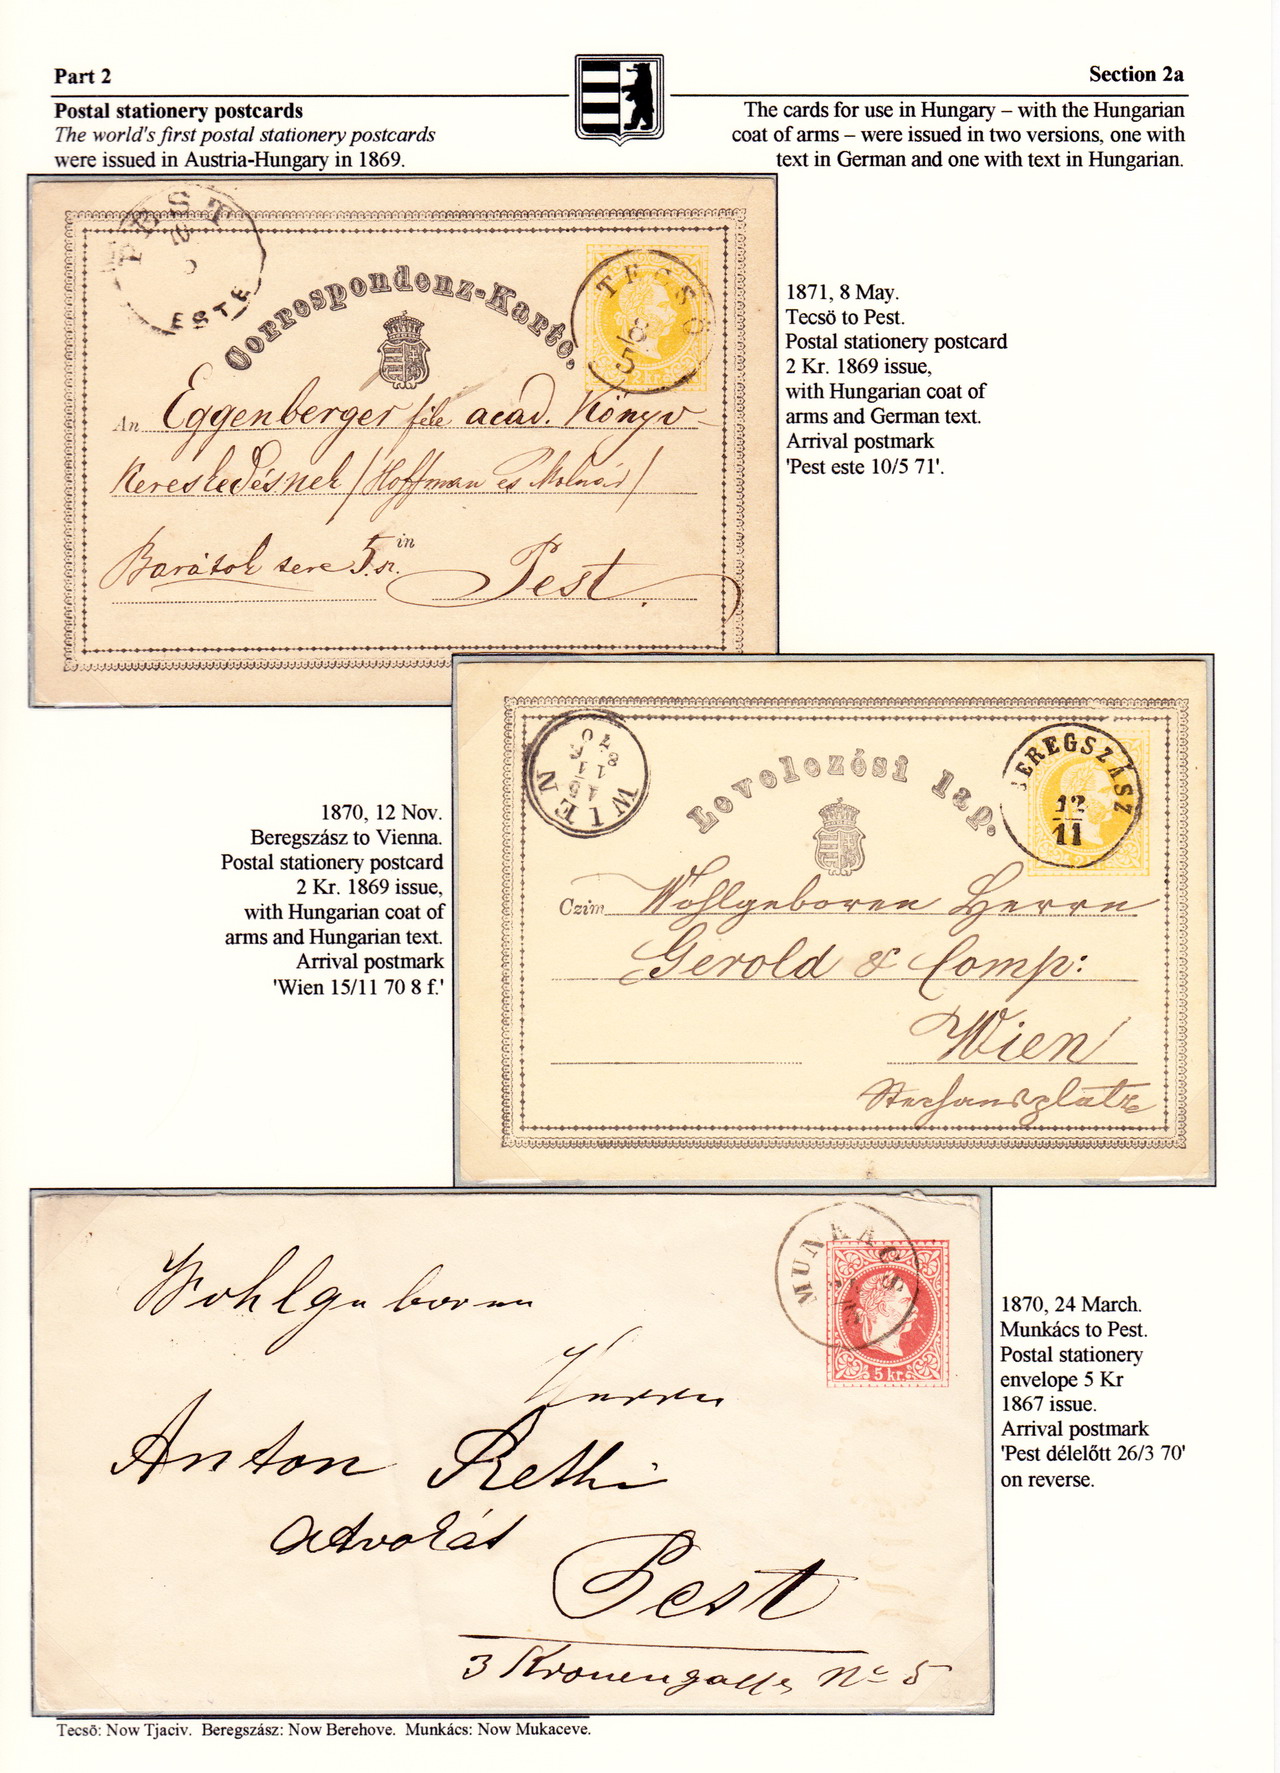 Part 2
Section 2a
Postal stationery postcards
The world's first postal stationery postcards
were issued in Austria-Hungary in 1869.
The cards for use in Hungary – with the Hungarian
coat of arms – were issued in two versions, one with
text in German and one with text in Hungarian.
PEST
ESTE
Correspondenz-Karte,
TECSÖ
8
5
2 kr.
An Eggenberger féle acad. Könyv-
Kereskedésnek / Hoffman és Molnár /
in
Barátok tere 5. sz. Pest.
1871, 8 May.
Tecsö to Pest.
Postal stationery postcard
2 Kr. 1869 issue,
with Hungarian coat of
arms and German text.
Arrival postmark
'Pest este 10/5 71'.
WIEN
Levelezési lap.
BEREGSZÁSZ
12
11
Czim Wohlgeboren Herrn
Gerold & Comp:
Wien
Stephansplatz
1870, 12 Nov.
Beregszász to Vienna.
Postal stationery postcard
2 Kr. 1869 issue,
with Hungarian coat of
arms and Hungarian text.
Arrival postmark
'Wien 15/11 70 8 f.'
MUNKÁCS
5 kr.
Wohlgeboren
Herrn
Anton Rethi
Advokát
Pest
3 Kronengasse No 5
1870, 24 March.
Munkács to Pest.
Postal stationery
envelope 5 Kr
1867 issue.
Arrival postmark
'Pest délelőtt 26/3 70'
on reverse.
Tecsö: Now Tjaciv. Beregszász: Now Berehove. Munkács: Now Mukaceve.